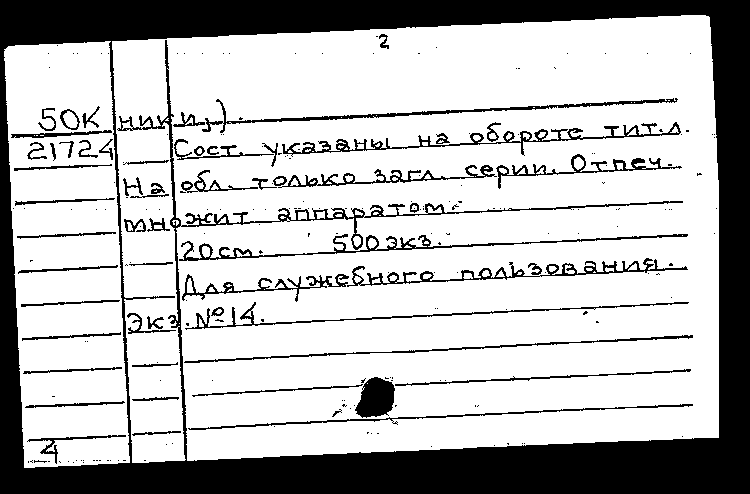 2
50К ники,).
21724 Сост. указаны на обороте тит.л.
На обл. только загл. серии. Отпеч.
множит аппаратом.
20см. 500 экз.
Для служебного пользования.
Экз.№14.
4